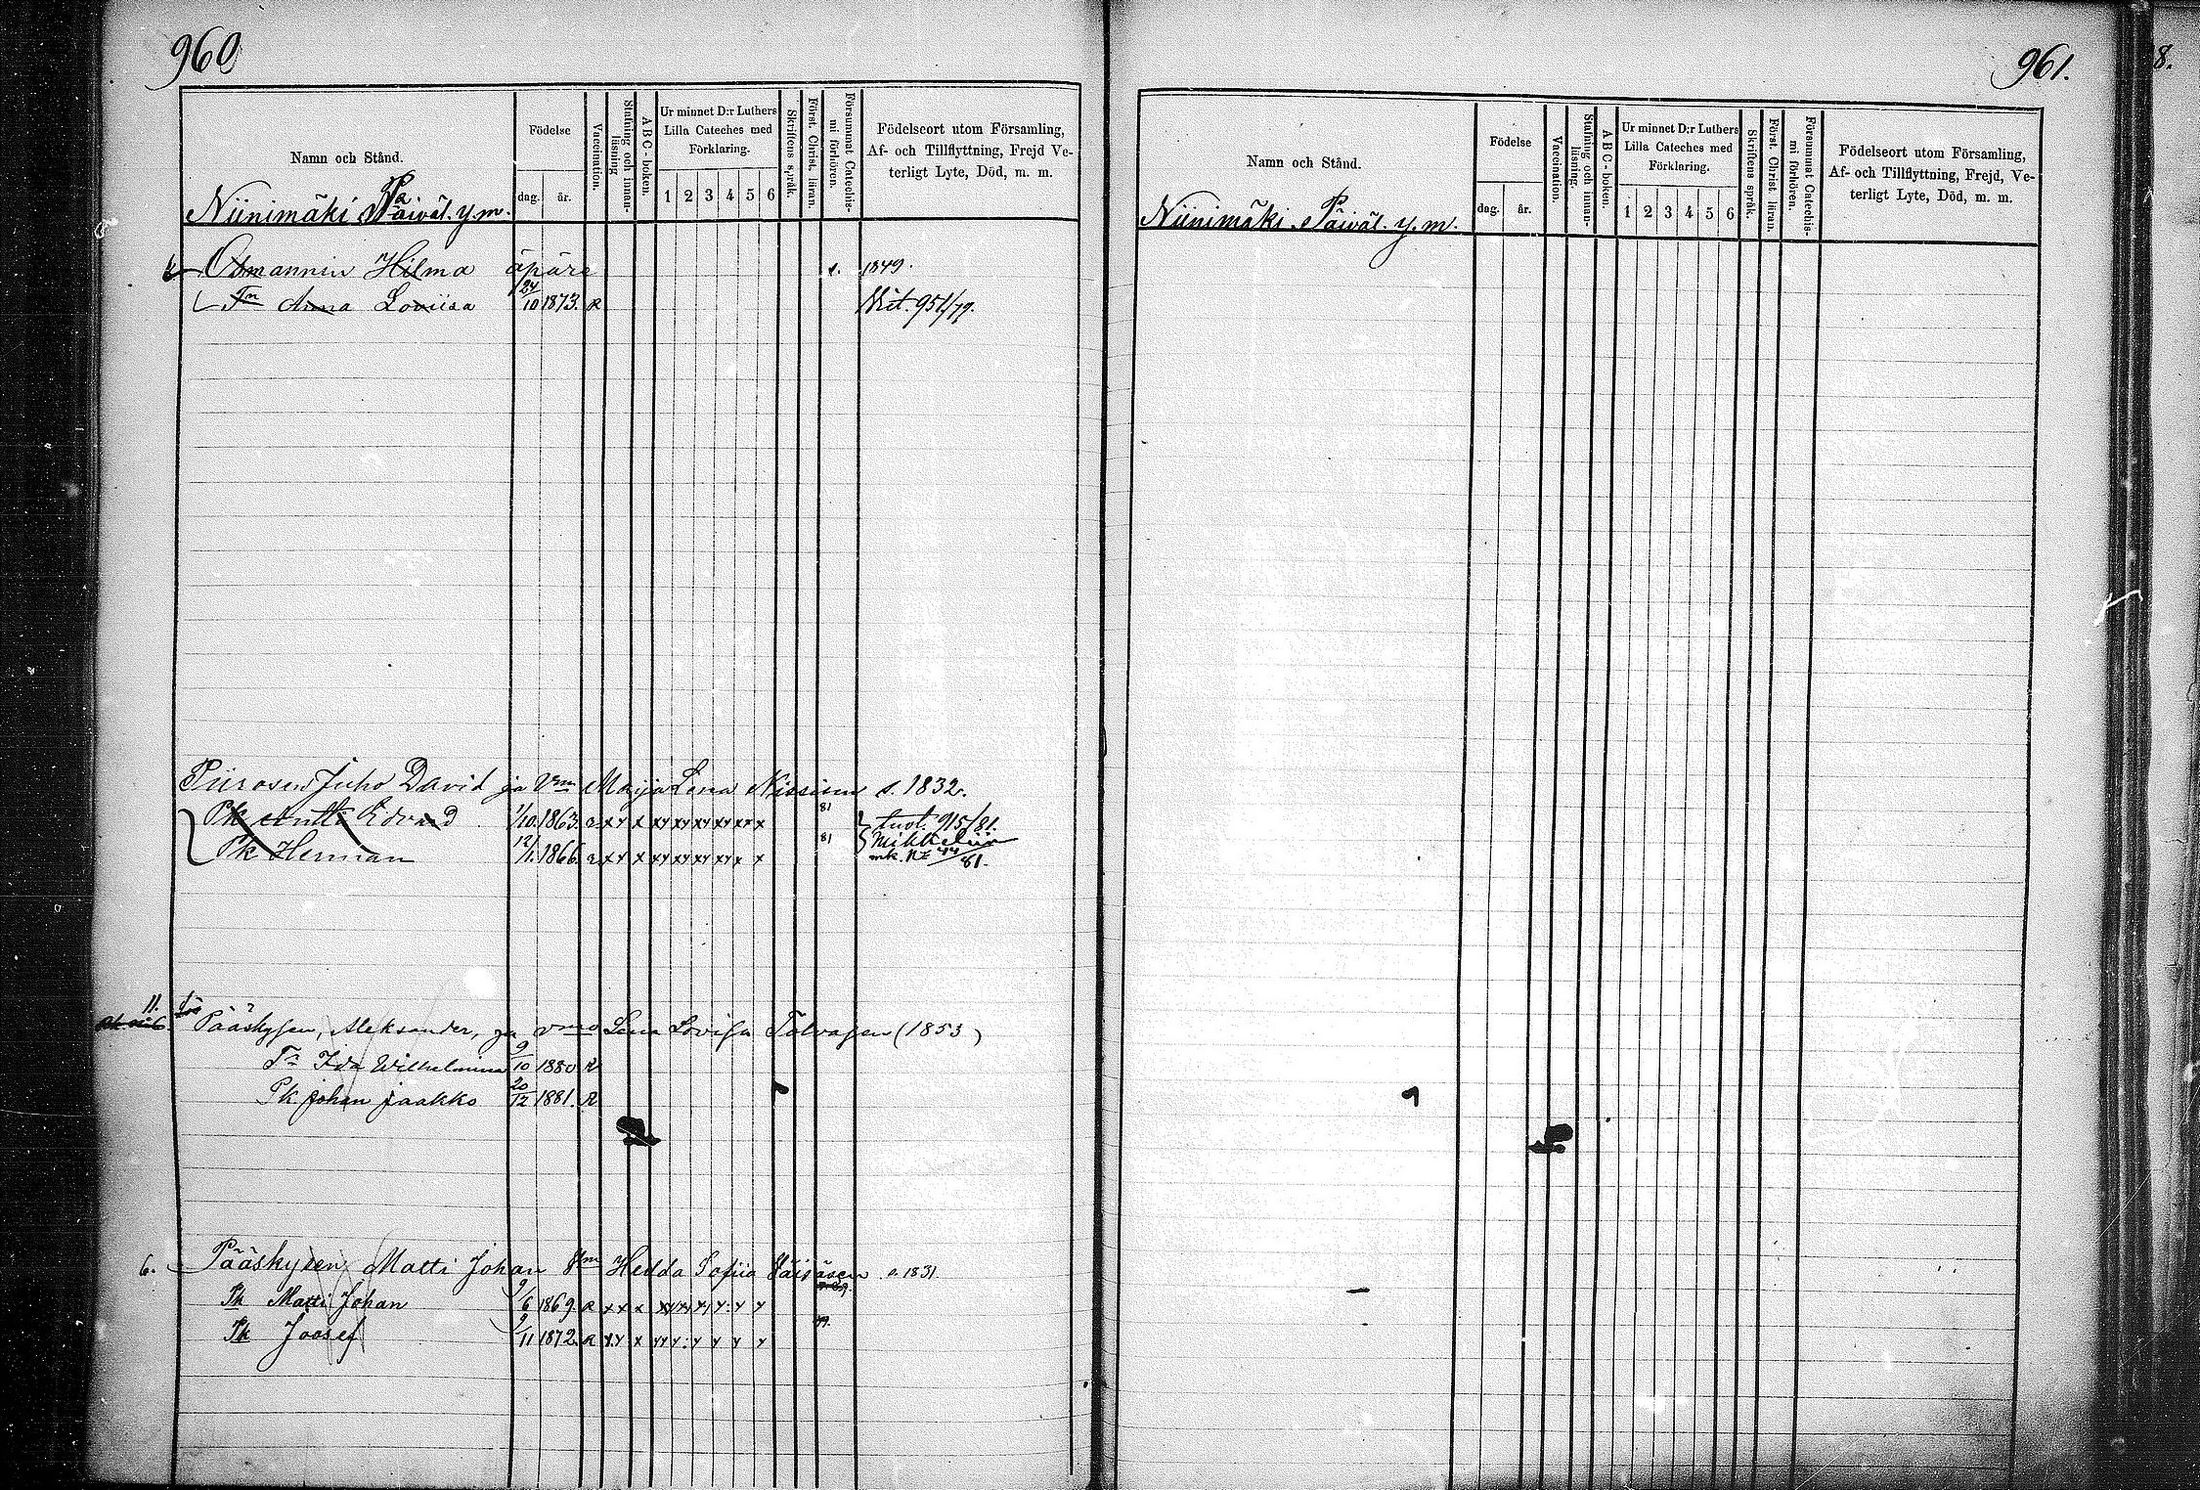 960
Namn och Stånd.
Födelse
dag.
år.
Vaccination.
Stafning och innan-
läsning
A B C - boken.
Ur minnet D:r Luthers
Lilla Cateches med
Förklaring.
1 2 3 4 5 6
Skriftens språk.
Först. Christ. läran.
Försummat Catechis-
mi förhören.
Födelseort utom Församling,
Af- och Tillflyttning, Frejd Ve-
terligt Lyte, Död, m. m.
Niinimäki Päiväl. y.m.
Hilma äpära s. 1849.
Tr Anna Loviisa 24/10 1873. R 951/79.
Piirosen Juho David ja Vm Maija Lena Nissisen s. 1832.
Pk Antti Edvard 1/10. 1863. x y x xy xy xy xy x x x 81 915/81.
Pk Herman 12/1. 1866. x y x xy xy xy xy x x 81 Mikkeliin
mk. N: 44/81.
11.
Pääskysen, Aleksander, ja vmo Lena Lovisa Tolvasen (1853)
Tr Ida Wilhelmina 9/10 1880 R
Pk Johan Jaakko 20/12 1881. R
6. Pääskysen Matti Johan Vm Hedda Sofiia Väisäsen s. 1831.
Pk Matti Johan 9/6 1869. R x x x
Pk Joosef 9/11 1872. R 79.
961.
Namn och Stånd.
Födelse
dag.
år.
Vaccination.
Stafning och innan-
läsning.
A B C - boken.
Ur minnet D:r Luthers
Lilla Cateches med
Förklaring.
1 2 3 4 5 6
Skriftens språk.
Först. Christ läran.
Försummat Catechis-
mi förhören.
Födelseort utom Församling,
Af- och Tillflyttning, Frejd, Ve-
terligt Lyte, Död, m. m.
Niinimäki Päiväl. y.m.
8.